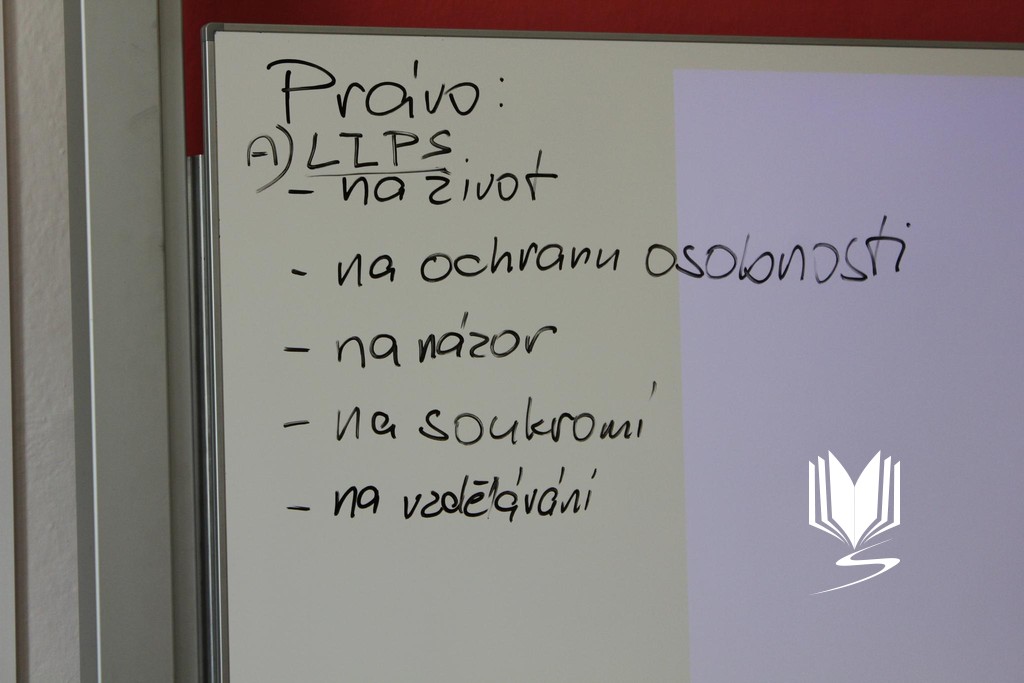 Právo:
A) LIPS
- na život
- na ochranu osobnosti
- na názor
- na soukromí
- na vzdělávání